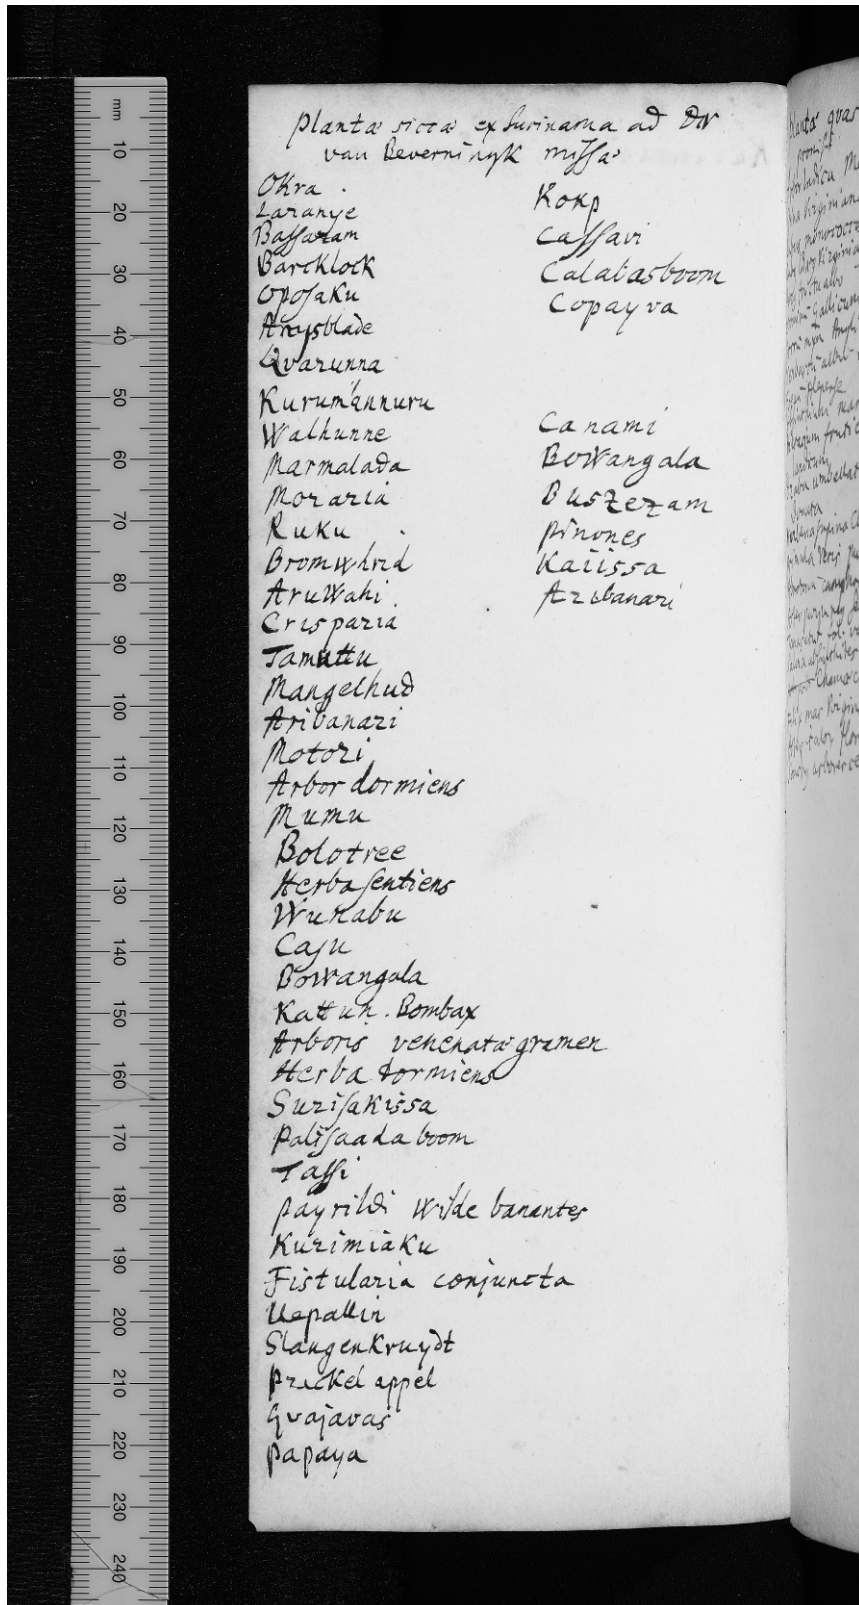 Plantæ siccæ ex Surinama ad Dn̄
van Beverningk missæ
Okra
Laranye
Bassaram
Barcklock
Oposaku
Arnysblade
Qvarunna
Kurumannuru
Walhunne
Marmalada
Moraria
Ruku
Bromwhrid
AruWahi
Crisparia
Tamuttu
Mangelhud
Aribanari
Motori
Arbor dormiens
Mumu
Bolotree
Herba sentiens
Wunabu
Caju
Bowangala
Kattun. Bombax
Arboris venenatæ gramen
Herba dormiens
Surisakissa
Palissaada boom
Tassi
payrildi Wilde banantes
Kurimiaku
Fistularia conjuncta
Uepallin
Slangenkruydt
Prickel appel
Gvajavas
Papaya
Kokp
Cassavi
Calabasboom
Copayva
Canami
Bowangala
Buszezam
pinones
Kaiissa
Aribanari